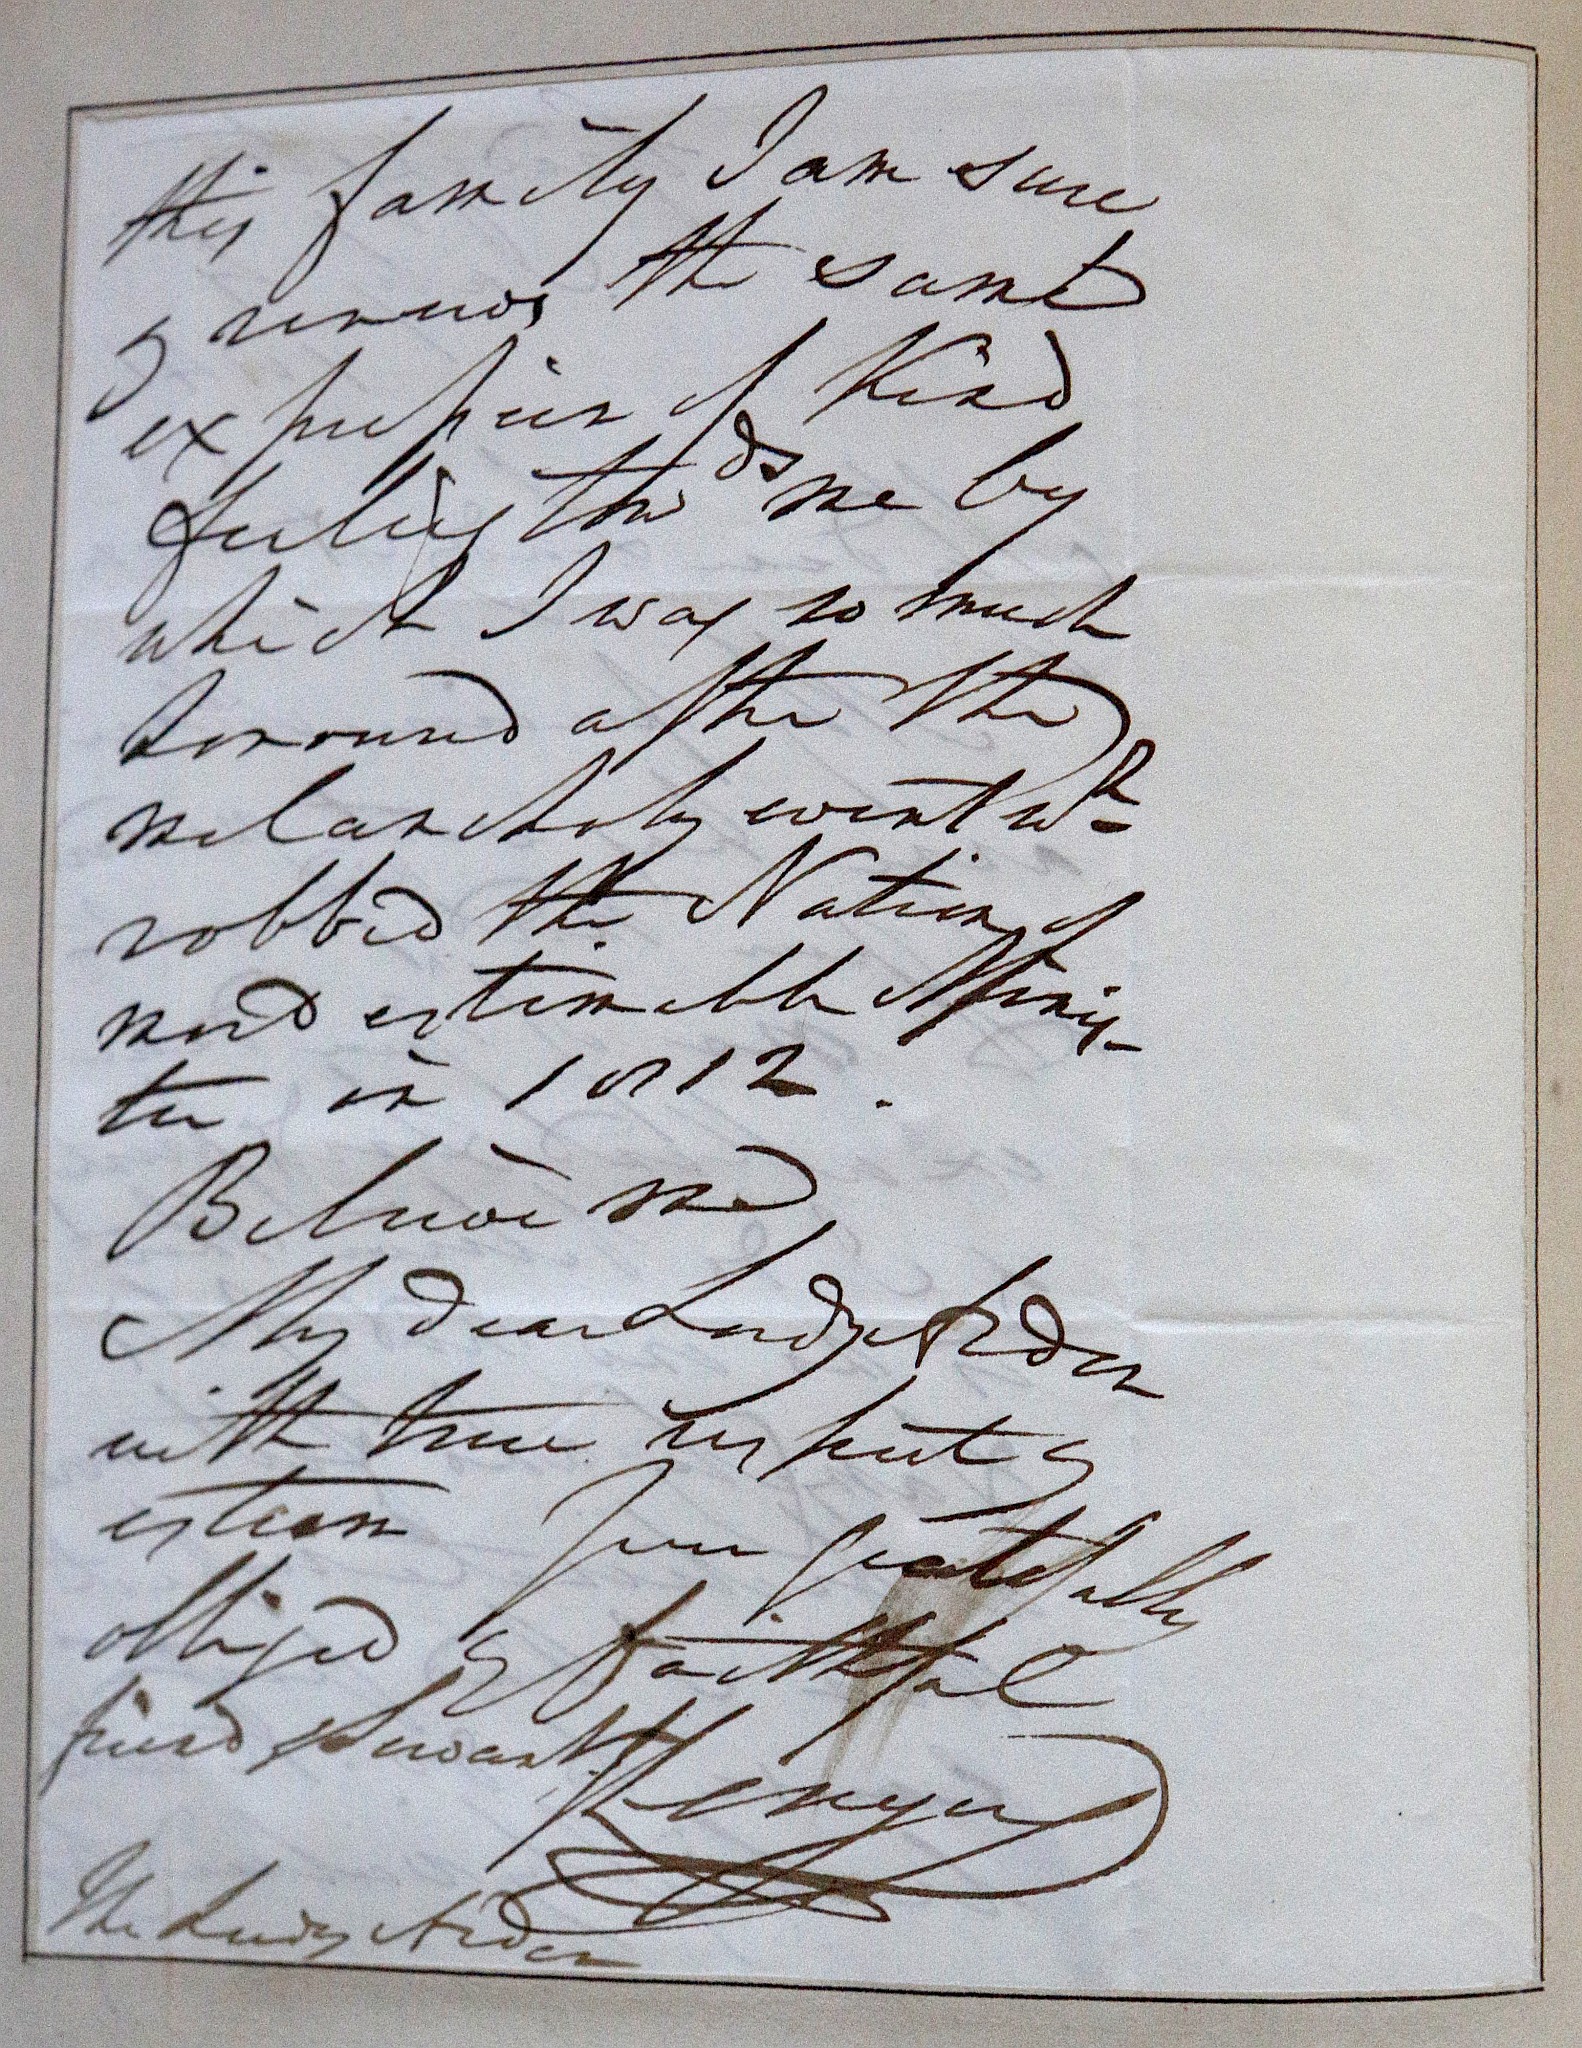 this family I am sure
& renews the same
expression of Kind
feeling tow^ds me by
which I was so much
honoured after the
melancholy event w^h
robbed the Nation of
most estimable Minis-
ter in 1812.
Believe me
My dear Lady Arden
with true respect &
esteem Your gratefully
obliged & faithful
friend & Servant
Kenyon
The Lady Arden